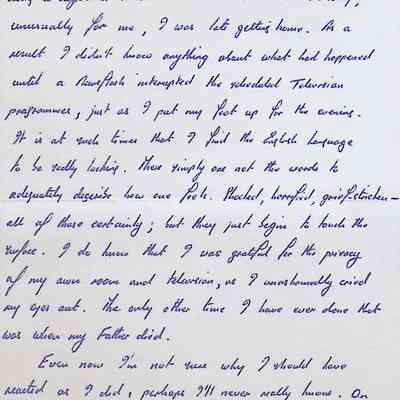 unusually for me, I was late getting home. As a
result I didn't know anything about what had happened
until a Newsflash interrupted the scheduled Television
programmes, just as I put my feet up for the evening.
It is at such times that I find the English Language
to be sadly lacking. There simply are not the words to
adequately describe how one feels. Shocked, horrified, grief-stricken —
all of those certainly; but they just begin to touch the
surface. I do know that I was grateful for the privacy
of my own room and television, as I unashamedly cried
my eyes out. The only other time I have ever done that
was when my Father died.
Even now I'm not sure why I should have
reacted as I did, perhaps I'll never really know. On